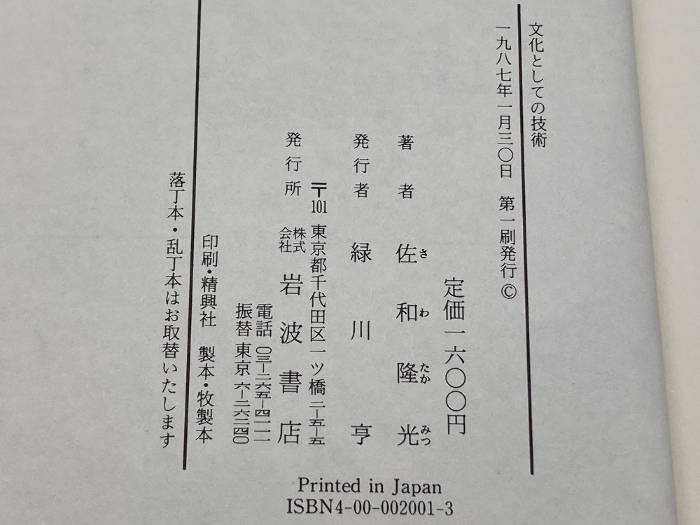 文化としての技術
一九八七年一月三〇日 第一刷発行©
定価一六〇〇円
著者 佐和隆光
さわたかみつ
発行者 緑川亨
〒101 東京都千代田区一ツ橋二-五-五
発行所 株式会社 岩波書店
電話 〇三-二六五-四一一一
振替 東京 六-二六二四〇
印刷・精興社 製本・牧製本
落丁本・乱丁本はお取替いたします
Printed in Japan
ISBN4-00-002001-3